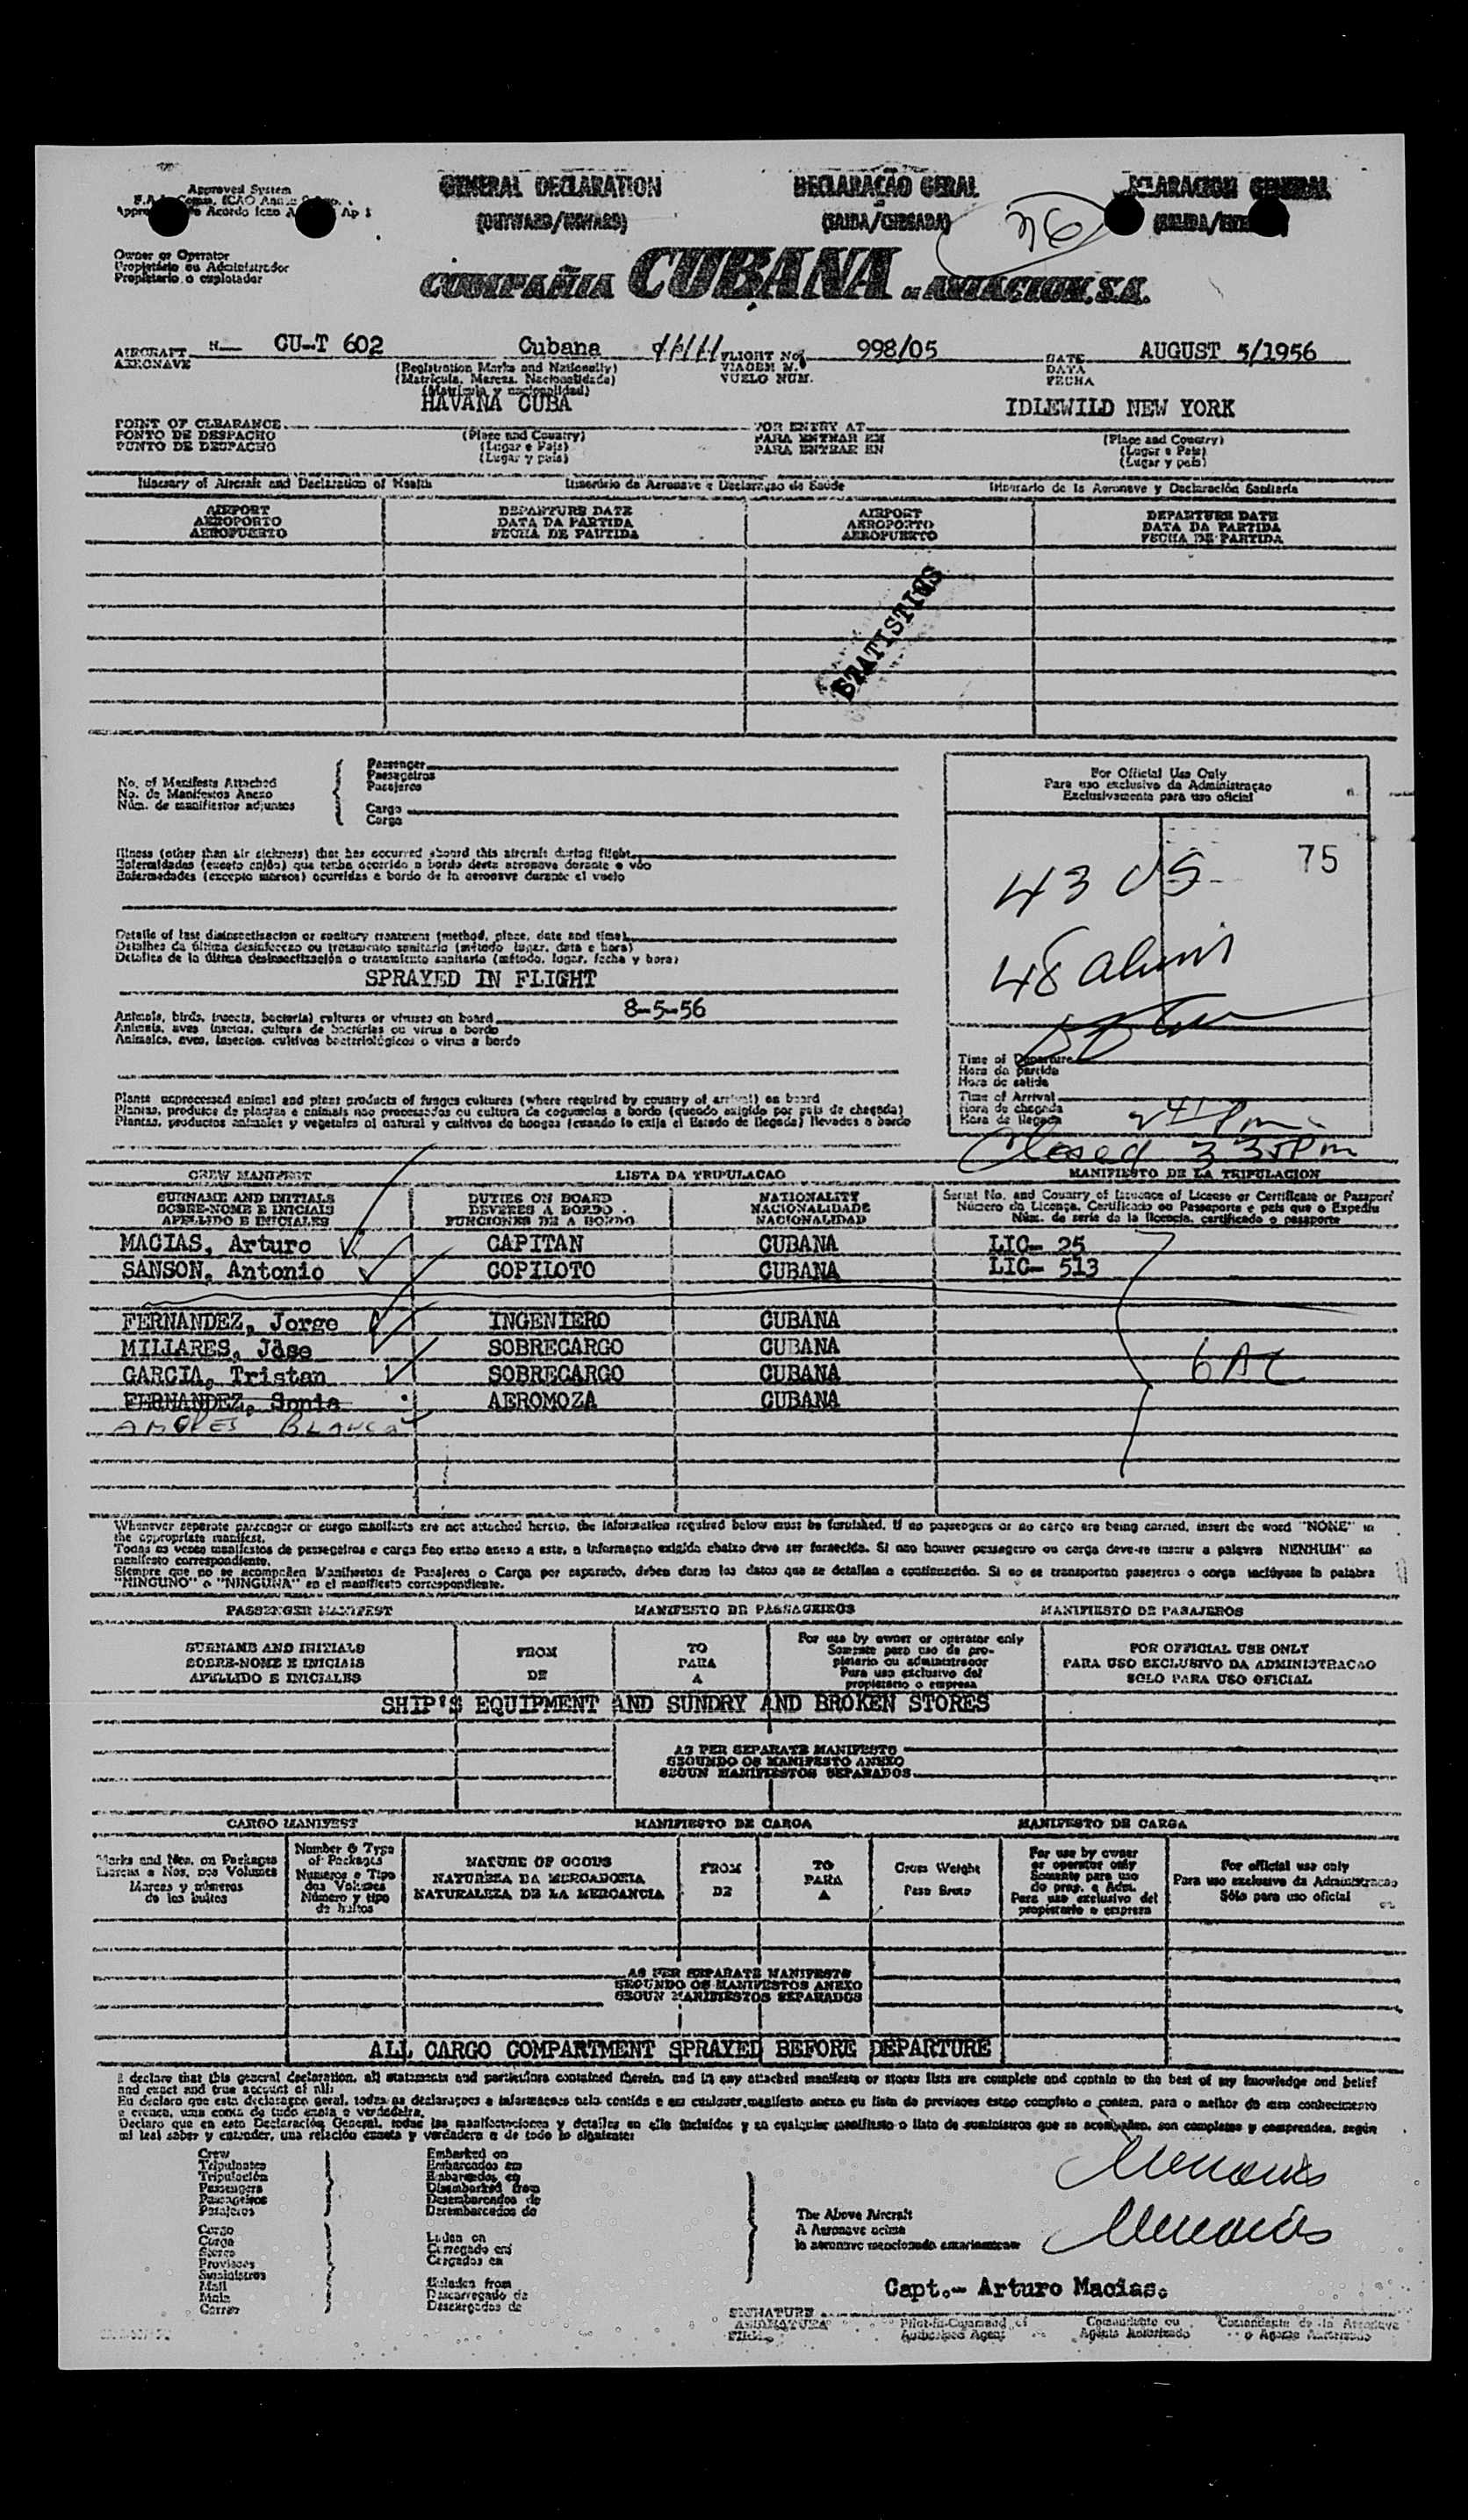 Approved System
GENERAL DECLARATION
(OUTWARD/INWARD)
DECLARAÇÃO GERAL
(SAIDA/CHEGADA)
DECLARACION GENERAL
76
Owner or Operator
Propietário ou Administrador
Propietario o explotador
COMPAÑIA CUBANA DE AVIACION, S.A.
AIRCRAFT CU-T 602 Cubana FLIGHT No. 998/05 DATE AUGUST 5/1956
AERONAVE (Registration Marks and Nationality) VIAGEM N.º DATA
(Matricula, Marcas, Nacionalidade) VUELO NUM. FECHA
(Matricula y nacionalidad)
HAVANA CUBA IDLEWILD NEW YORK
POINT OF CLEARANCE FOR ENTRY AT
PONTO DE DESPACHO (Place and Country) PARA ENTRAR EM (Place and Country)
PUNTO DE DESPACHO (Lugar e Pais) PARA ENTRAR EN (Lugar e Pais)
(Lugar y pais) (Lugar y pais)
Itinerary of Aircraft and Declaration of Health Itinerário da Aeronave e Declaraçao de Saúde Itinerario de la Aeronave y Declaración Sanitaria
AIRPORT DEPARTURE DATE AIRPORT DEPARTURE DATE
AEROPORTO DATA DA PARTIDA AEROPORTO DATA DA PARTIDA
AEROPUERTO FECHA DE PARTIDA AEROPUERTO FECHA DE PARTIDA
STATISTICS
No. of Manifests Attached
No. de Manifestos Anexo
Núm. de manifiestos adjuntos
Passenger
Passageiros
Pasajeros
Cargo
Carga
For Official Use Only
Para uso exclusivo da Administraçao
Exclusivamente para uso oficial
75
43 US
48 aliens
Illness (other than air sickness) that has occurred aboard this aircraft during flight
Enfermidades (exceto enjôo) que tenha ocorrido a bordo desta aeronave durante o vôo
Enfermedades (excepto mareos) ocurridas a bordo de la aeronave durante el vuelo
Details of last disinsectisacion or sanitary treatment (method, place, date and time)
Detalhes da última desinfeccao ou tratamento sanitario (método, lugar, data e hora)
Detalles de la última desinsectización o tratamiento sanitario (método, lugar, fecha y hora)
SPRAYED IN FLIGHT
8-5-56
Animals, birds, insects, bacterial cultures or viruses on board
Animais, aves insetos, cultura de bactérias ou virus a bordo
Animales, aves, insectos, cultivos bacteriológicos o virus a bordo
Time of Departure
Hora da partida
Hora de salida
Time of Arrival
Hora da chegada
Hora de llegada
Plants unprocessed animal and plant products of fungus cultures (where required by country of arrival) on board
Plantas, produtos de plantas e animais nao processados ou cultura de cogumelos a bordo (quando exigido por pais de chegada)
Plantas, productos animales y vegetales al natural y cultivos de hongos (cuando lo exija el Estado de llegada) llevados a bordo
Closed 3 35 Pm
CREW MANIFEST LISTA DA TRIPULACAO MANIFIESTO DE LA TRIPULACION
SURNAME AND INITIALS DUTIES ON BOARD NATIONALITY Serial No. and Country of Issuence of License or Certificate or Passport
SOBRE-NOME E INICIAIS DEVERES A BORDO NACIONALIDADE Número da Licença, Certificado ou Passaporte e pais que o Expediu
APELLIDO E INICIALES FUNCIONES DE A BORDO NACIONALIDAD Núm. de serie de la licencia, certificado o pasaporte
MACIAS, Arturo CAPITAN CUBANA LIC- 25
SANSON, Antonio COPILOTO CUBANA LIC- 513
FERNANDEZ, Jorge INGENIERO CUBANA
MILIARES, Jose SOBRECARGO CUBANA 6 AC
GARCIA, Tristan SOBRECARGO CUBANA
FERNANDEZ, Sonia AEROMOZA CUBANA
AMORES BLANCA
Whenever separate passenger or cargo manifests are not attached hereto, the information required below must be furnished. If no passengers or no cargo are being carried, insert the word "NONE" in
the appropriate manifest.
Todas as vezes manifestos de passageiros e carga nao estao anexo a este, a informaçao exigida abaixo deve ser fornecida. Si nao houver passageiro ou carga deve-se inserir a palavra NENHUM" no
manifesto correspondiente.
Siempre que no se acompañen Manifiestos de Pasajeros o Carga por separado, deben darse los datos que se detallan a continuación. Si no se transportan pasajeros o carga inclúyase la palabra
"NINGUNO" o "NINGUNA" en el manifiesto correspondiente.
PASSENGER MANIFEST MANIFESTO DE PASSAGEIROS MANIFIESTO DE PASAJEROS
SURNAME AND INITIALS
SOBRE-NOME E INICIAIS
APELLIDO E INICIALES
FROM
DE
TO
PARA
A
For use by owner or operator only
Somente para uso de pro-
pietario ou administrador
Para uso exclusivo del
propietario o empresa
FOR OFFICIAL USE ONLY
PARA USO EXCLUSIVO DA ADMINISTRACAO
SOLO PARA USO OFICIAL
SHIP'S EQUIPMENT AND SUNDRY AND BROKEN STORES
AS PER SEPARATE MANIFESTO
SEGUNDO OS MANIFESTO ANEXO
SEGUN MANIFIESTOS SEPARADOS
CARGO MANIFEST MANIFIESTO DE CARGA MANIFESTO DE CARGA
Marks and Nos. on Packages
Marcas e Nos. nos Volumes
Marcas y números
de los bultos
Number & Type
of Packages
Numeros e Tipo
dos Volumes
Número y tipo
de bultos
NATURE OF GOODS
NATUREZA DA MERCADORIA
NATURALEZA DE LA MERCANCIA
FROM
DE
TO
PARA
A
Gross Weight
Peso Bruto
For use by owner
or operator only
Somente para uso
do prop. e Adm.
Para uso exclusivo del
propietario o empresa
For official use only
Para uso exclusivo da Administracao
Sólo para uso oficial
AS PER SEPARATE MANIFESTO
SEGUNDO OS MANIFESTOS ANEXO
SEGUN MANIFIESTOS SEPARADOS
ALL CARGO COMPARTMENT SPRAYED BEFORE DEPARTURE
I declare that this general declaration, all statements and particulars contained therein, and in any attached manifests or stores lists are complete and contain to the best of my knowledge and belief
and exact and true account of all:
Eu declaro que esta declaraçao geral, todas as declaraçoes e informaçoes nela contida e em cualquer manifesto anexo ou lista de previsoes estao completo e contem, para o melhor do meu conhecimento
e crenca, uma conta de tudo exata e verdadeira.
Declaro que en esta Declaración General, todas las manifestaciones y detalles en ella incluidos y en cualquier manifiesto o lista de suministros que se acompañen, son completas y comprenden, según
mi leal saber y entender, una relación exacta y verdadera de todo lo siguiente:
Crew
Tripulantes
Tripulación
Passengers
Passageiros
Pasajeros
Embarked on
Embarcados em
Embarcados en
Disembarked from
Desembarcados de
Desembarcados de
Cargo
Carga
Stores
Provisoes
Suministros
Mail
Mala
Correo
Laden on
Carregado em
Cargados en
Unladen from
Descarregado de
Descargados de
The Above Aircraft
A Aeronave acima
la aeronave mencionada anteriormente
Capt.- Arturo Macias.
SIGNATURE
ASINATURA
FIRMA
Pilot-in-Command of
Authorised Agent
Comandante ou
Agente Autorizado
Comandante de la Aeronave
o Agente Autorizado